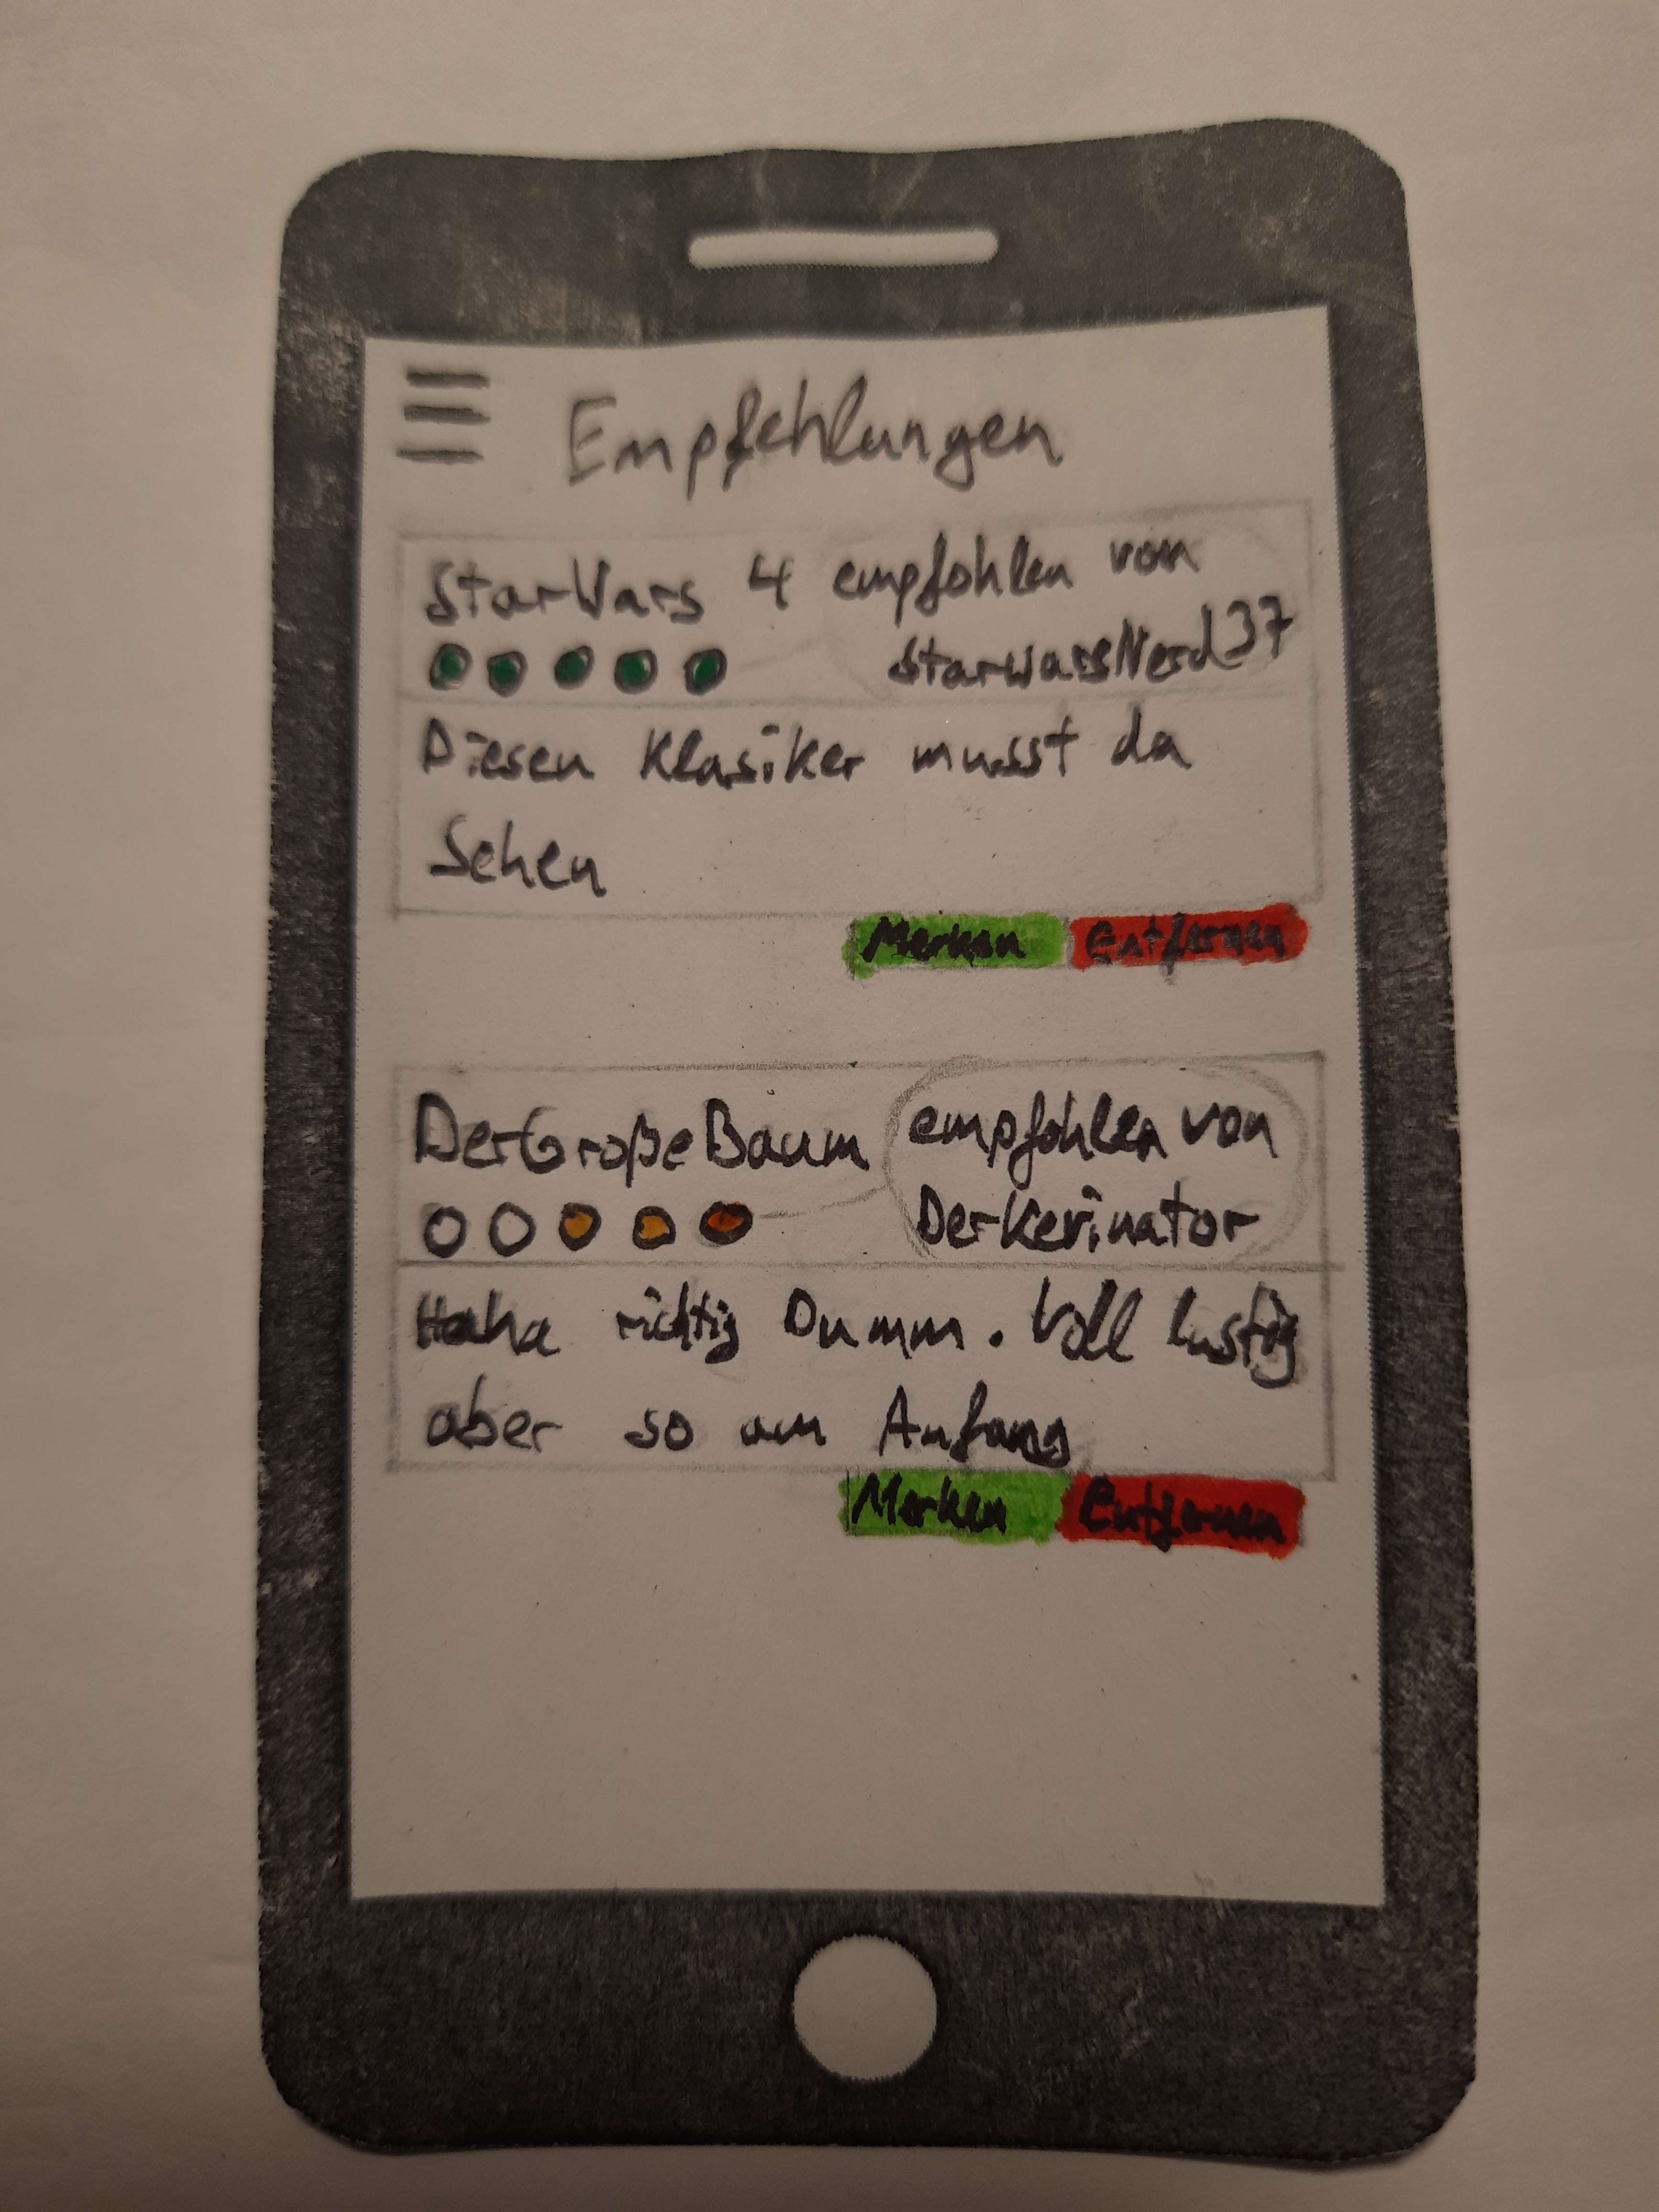 Empfehlungen
StarWars 4 empfohlen von
StarWarsNerd37
Diesen Klasiker musst da
Sehen
Merken Entfernen
DerGroßeBaum empfohlen von
DerKevinator
Haha richtig Dumm. Voll lustig
aber so am Anfang
Merken Entfernen